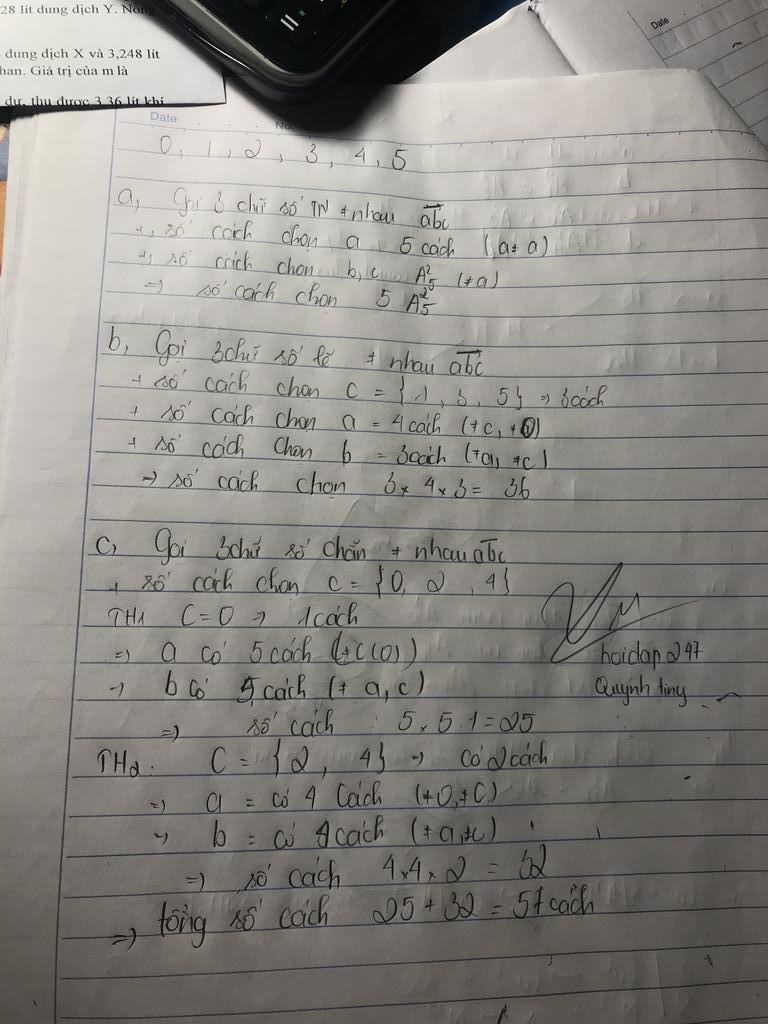 28 lít dung dịch Y. Nồng
dung dịch X và 3,248 lít
han. Giá trị của m là
dư, thu được 3,36 lít khí
Date
No.
Date
0, 1, 2, 3, 4, 5
a, Gọi 3 chữ số TN ≠ nhau abc
+, số cách chọn a 5 cách (a≠0)
+, số cách chọn b, c A²₅ (≠a)
=> số cách chọn 5 A²₅
b, Gọi 3 chữ số lẻ ≠ nhau abc
+ số cách chọn c = {1, 3, 5} => 3 cách
+ số cách chọn a = 4 cách (≠c, ≠0)
+ số cách chọn b = 3 cách (≠a, ≠c)
=> số cách chọn 3 × 4 × 3 = 36
c, Gọi 3 chữ số chẵn ≠ nhau abc
+ số cách chọn c = {0, 2, 4}
TH1 C=0 => 1 cách
=> a có 5 cách (≠c(0))
=> b có 5 cách (≠ a, c)
=> số cách : 5 × 5.1 = 25
TH2. C = {2, 4} => có 2 cách
=> a = có 4 cách (≠0, ≠c)
=> b = có 4 cách (≠a, ≠c)
=> số cách 4×4×2 = 32
=> tổng số cách 25 + 32 = 57 cách
hoidap 247
Quỳnh tiny